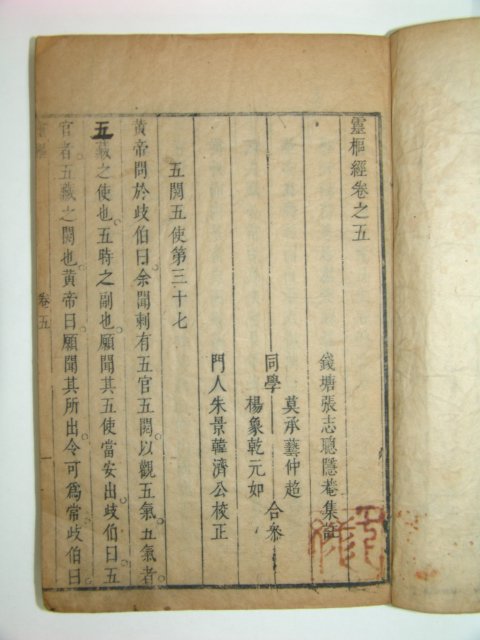 靈樞經卷之五
錢塘張志聰隱菴集註
莫承藝仲超
同學
合參
楊象乾元如
門人朱景韓濟公校正
五閱五使第三十七
黃帝問於歧伯曰余聞刺有五官五閱以觀五氣五氣者
五藏之使也五時之副也願聞其五使當安出歧伯曰五
官者五藏之閱也黃帝曰願聞其所出令可爲常歧伯曰
卷五